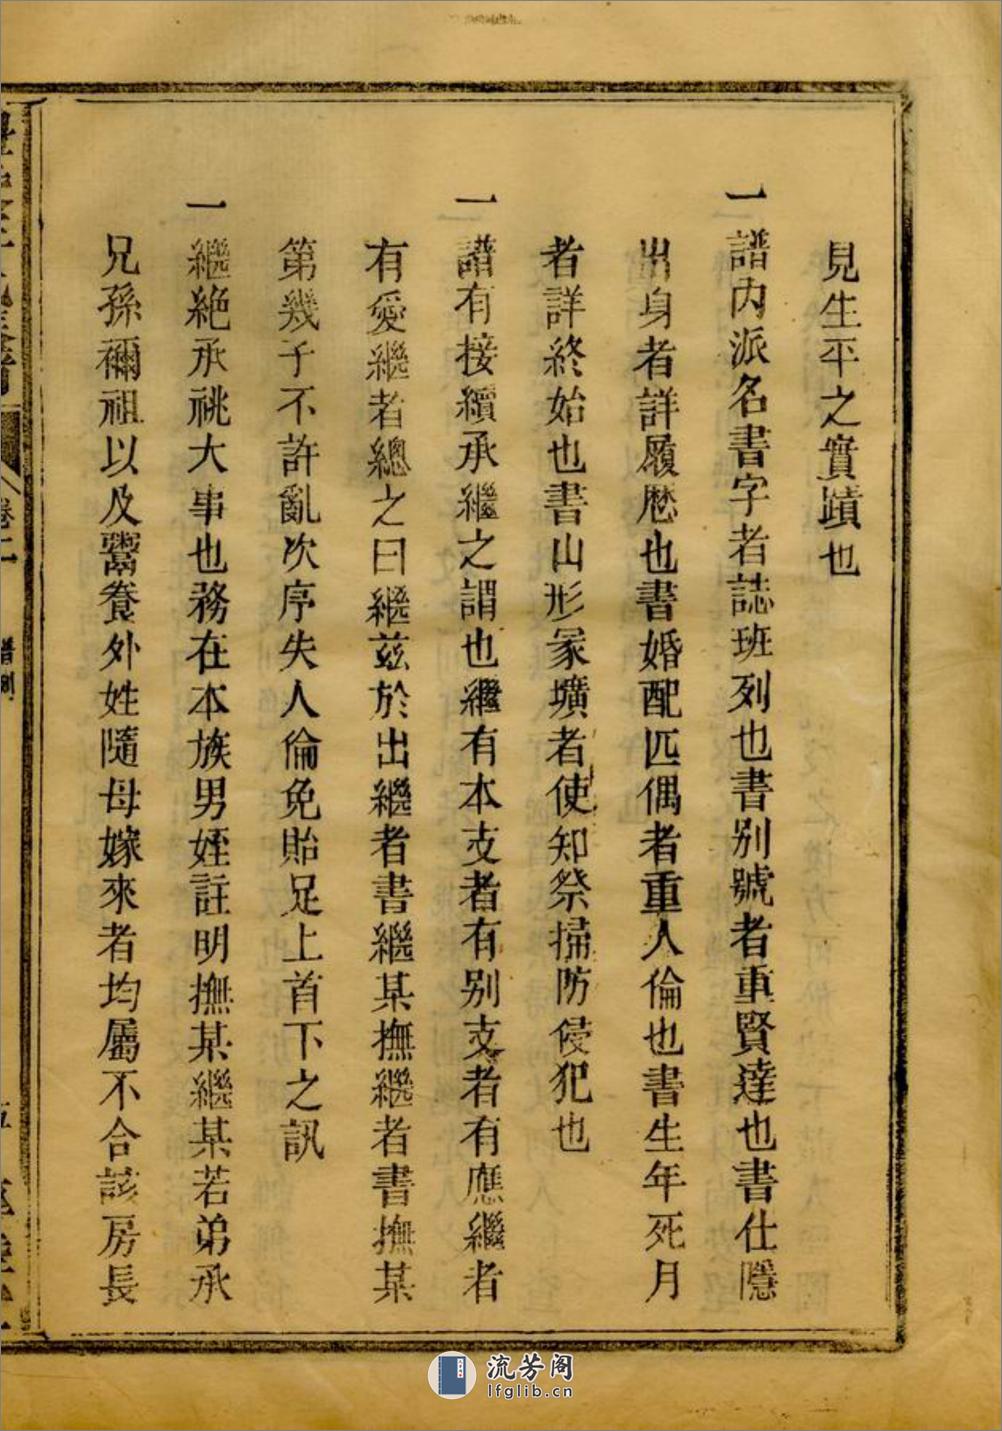 見生平之實蹟也
一譜內派名書字者誌班列也書别號者重賢達也書仕隱
出身者詳履歷也書婚配匹偶者重人倫也書生年死月
者詳終始也書山形冢壙者使知祭掃防侵犯也
一譜有接續承繼之謂也繼有本支者有别支者有應繼者
有愛繼者總之曰繼茲於出繼者書繼某撫繼者書撫某
第幾子不許亂次序失人倫免貽足上首下之訊
一繼絶承祧大事也務在本族男姪註明撫某繼某若弟承
兄孫禰祖以及鬻養外姓隨母嫁來者均屬不合該房長
卷二
譜例
流芳阁
lfglib.cn